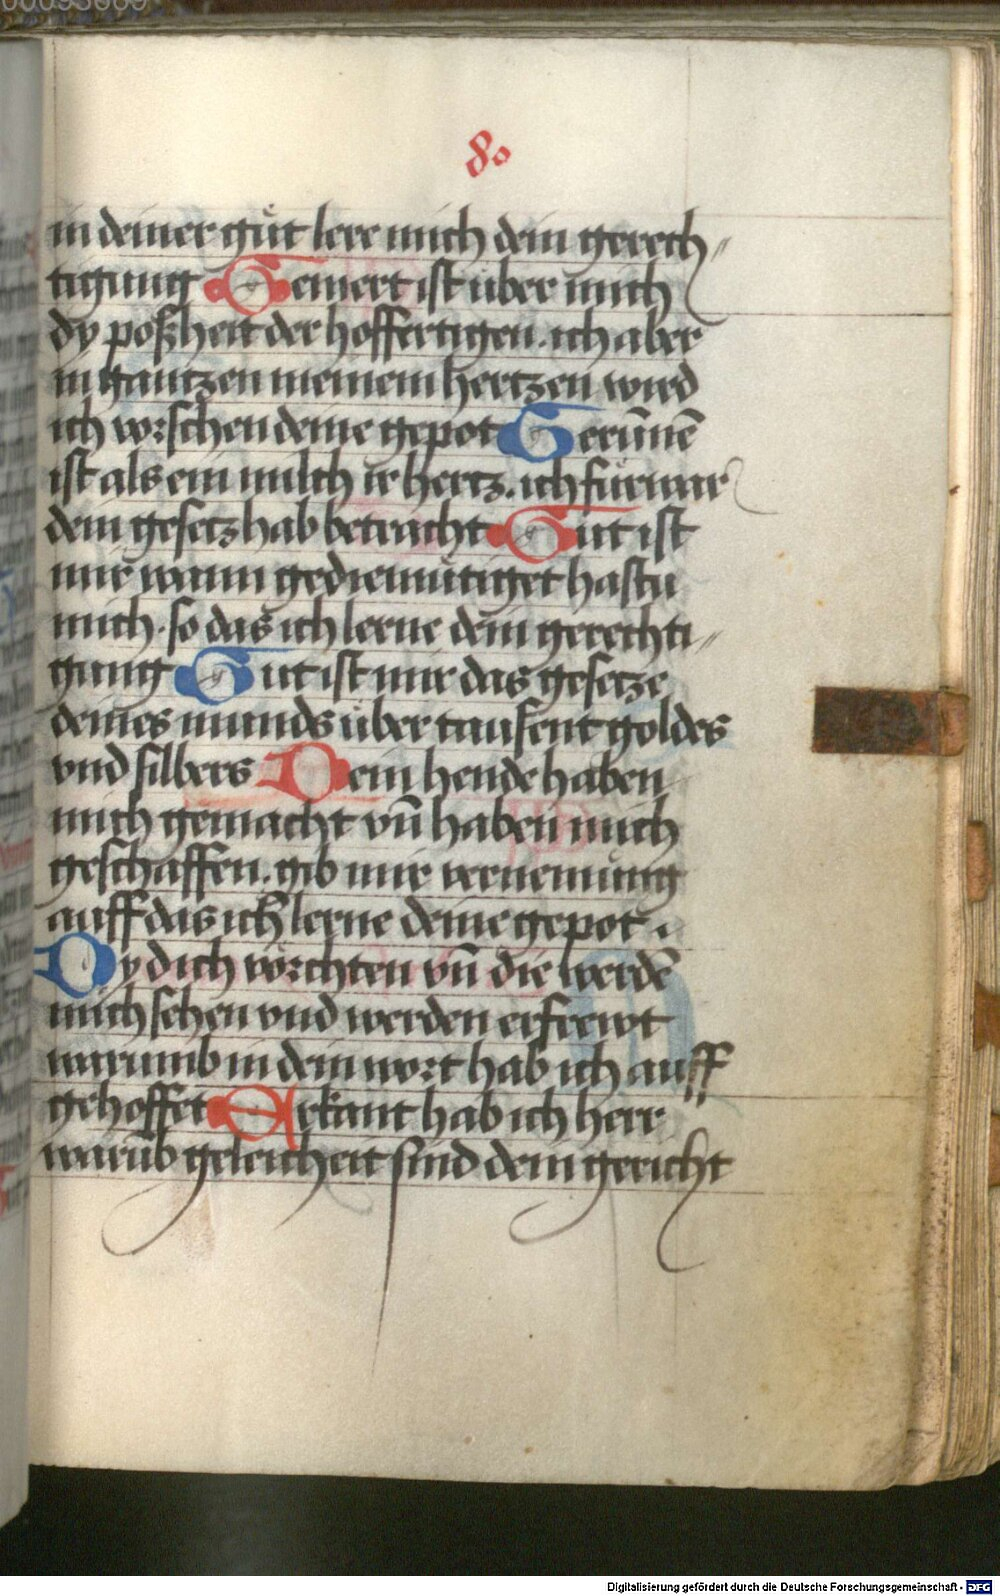 00093669
80
in deiner güt lere mich dein gerech〃
tigung Gemert ist über mich
dy poßheit der hoffertigen. ich aber
in gantzen meinem hertzen wird
ich vorschen deine gepot Gerūnē
ist als ein milch ir hertz. ich fürwar
dein gesetz hab betracht Gut ist
mir wann gediemütiget hastu
mich. so das ich lerne dein gerechti〃
gung Gut ist mir das gesetze
deines munds über tausent goldes
vnd silbers Dein hende haben
mich gemacht vn̄ haben mich
geschaffen. gib mir vernemung
auff das ich lerne deine gepot.
Dy dich vörchten vn̄ die werdē
mich sehen vnd werden erfrewt
warumb in dein wort hab ich auff
gehoffet Erkant hab ich herr
warūb geleicheit sind dein gericht
Digitalisierung gefördert durch die Deutsche Forschungsgemeinschaft - DFG